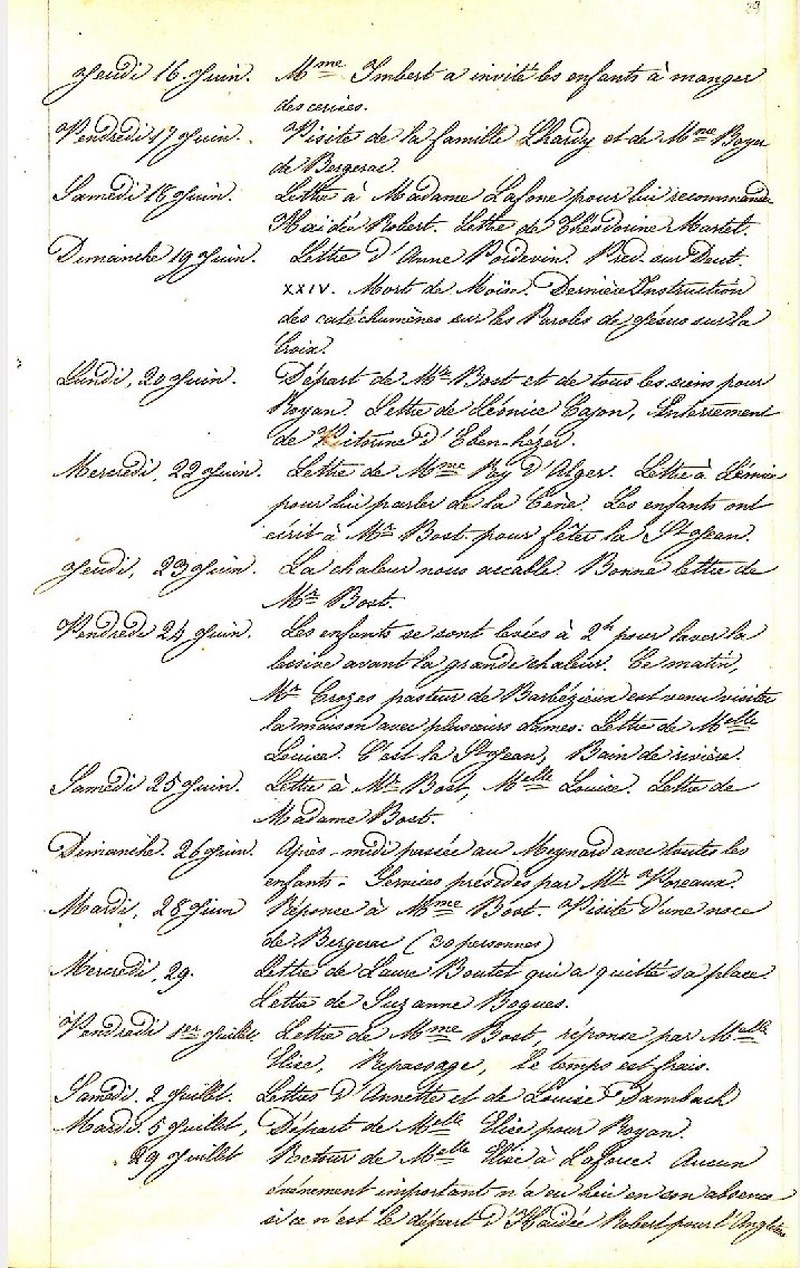 29
Jeudi 16 Juin. Mme Imbert a invité les enfants à manger
des cerises.
Vendredi 17 Juin. Visite de la famille Lhardy et de Mme Boyer
de Bergerac.
Samedi 18 Juin. Lettre à Madame Lafone pour lui recommander
Haïdée Robert. Lettre de Théodorine Martel.
Dimanche 19 Juin. Lettre d'Anne Poidevin. Pred. sur Deut.
XXIV. Mort de Moïse. Dernière Instruction
des catéchumènes sur les Paroles de Jésus sur la
Croix.
Lundi, 20 Juin. Départ de Mr Bost et de tous les siens pour
Royan. Lettre de Léonice Cajon, Enterrement
de d'Eben-hézer.
Mercredi, 22 Juin. Lettre de Mme Roy d'Alger. Lettre à Léonice
pour lui parler de la Cène. Les enfants ont
écrit à Mr Bost pour fêter la St Jean.
Jeudi, 23 Juin. La chaleur nous accable. Bonne lettre de
Mr Bost.
Vendredi 24 Juin. Les enfants se sont levées à 2h pour laver la
lessive avant la grande chaleur. Ce matin,
Mr Crozes pasteur de Barbézieux est venu visiter
la maison avec plusieurs dames: Lettre de Melle
Louise. C'est la St Jean, Bain de rivière.
Samedi 25 Juin. Lettre à Mr Bost, Melle Louise. Lettre de
Madame Bost.
Dimanche. 26 Juin. Après-midi passée au Meynard avec toutes les
enfants. Services présidés par Mr Poreaux.
Mardi, 28 Juin Réponse à Mme Bost. Visite d'une noce
de Bergerac (30 personnes)
Mercredi, 29. Lettre de Laure Boutet qui a quitté sa place.
Lettre de Suzanne Bogues.
Vendredi 1er Juillet. Lettre de Mme Bost, réponse par Melle
Elise, Repassage, le temps est frais.
Samedi. 2 Juillet. Lettres d'Annette et de Louise Dambach
Mardi. 5 Juillet, Départ de Melle Elise pour Royan.
29 Juillet Retour de Melle Elise à Laforce. Aucun
événement important n'a eu lieu en son absence
si ce n'est le départ d'Haïdée Robert pour l'Angleterre